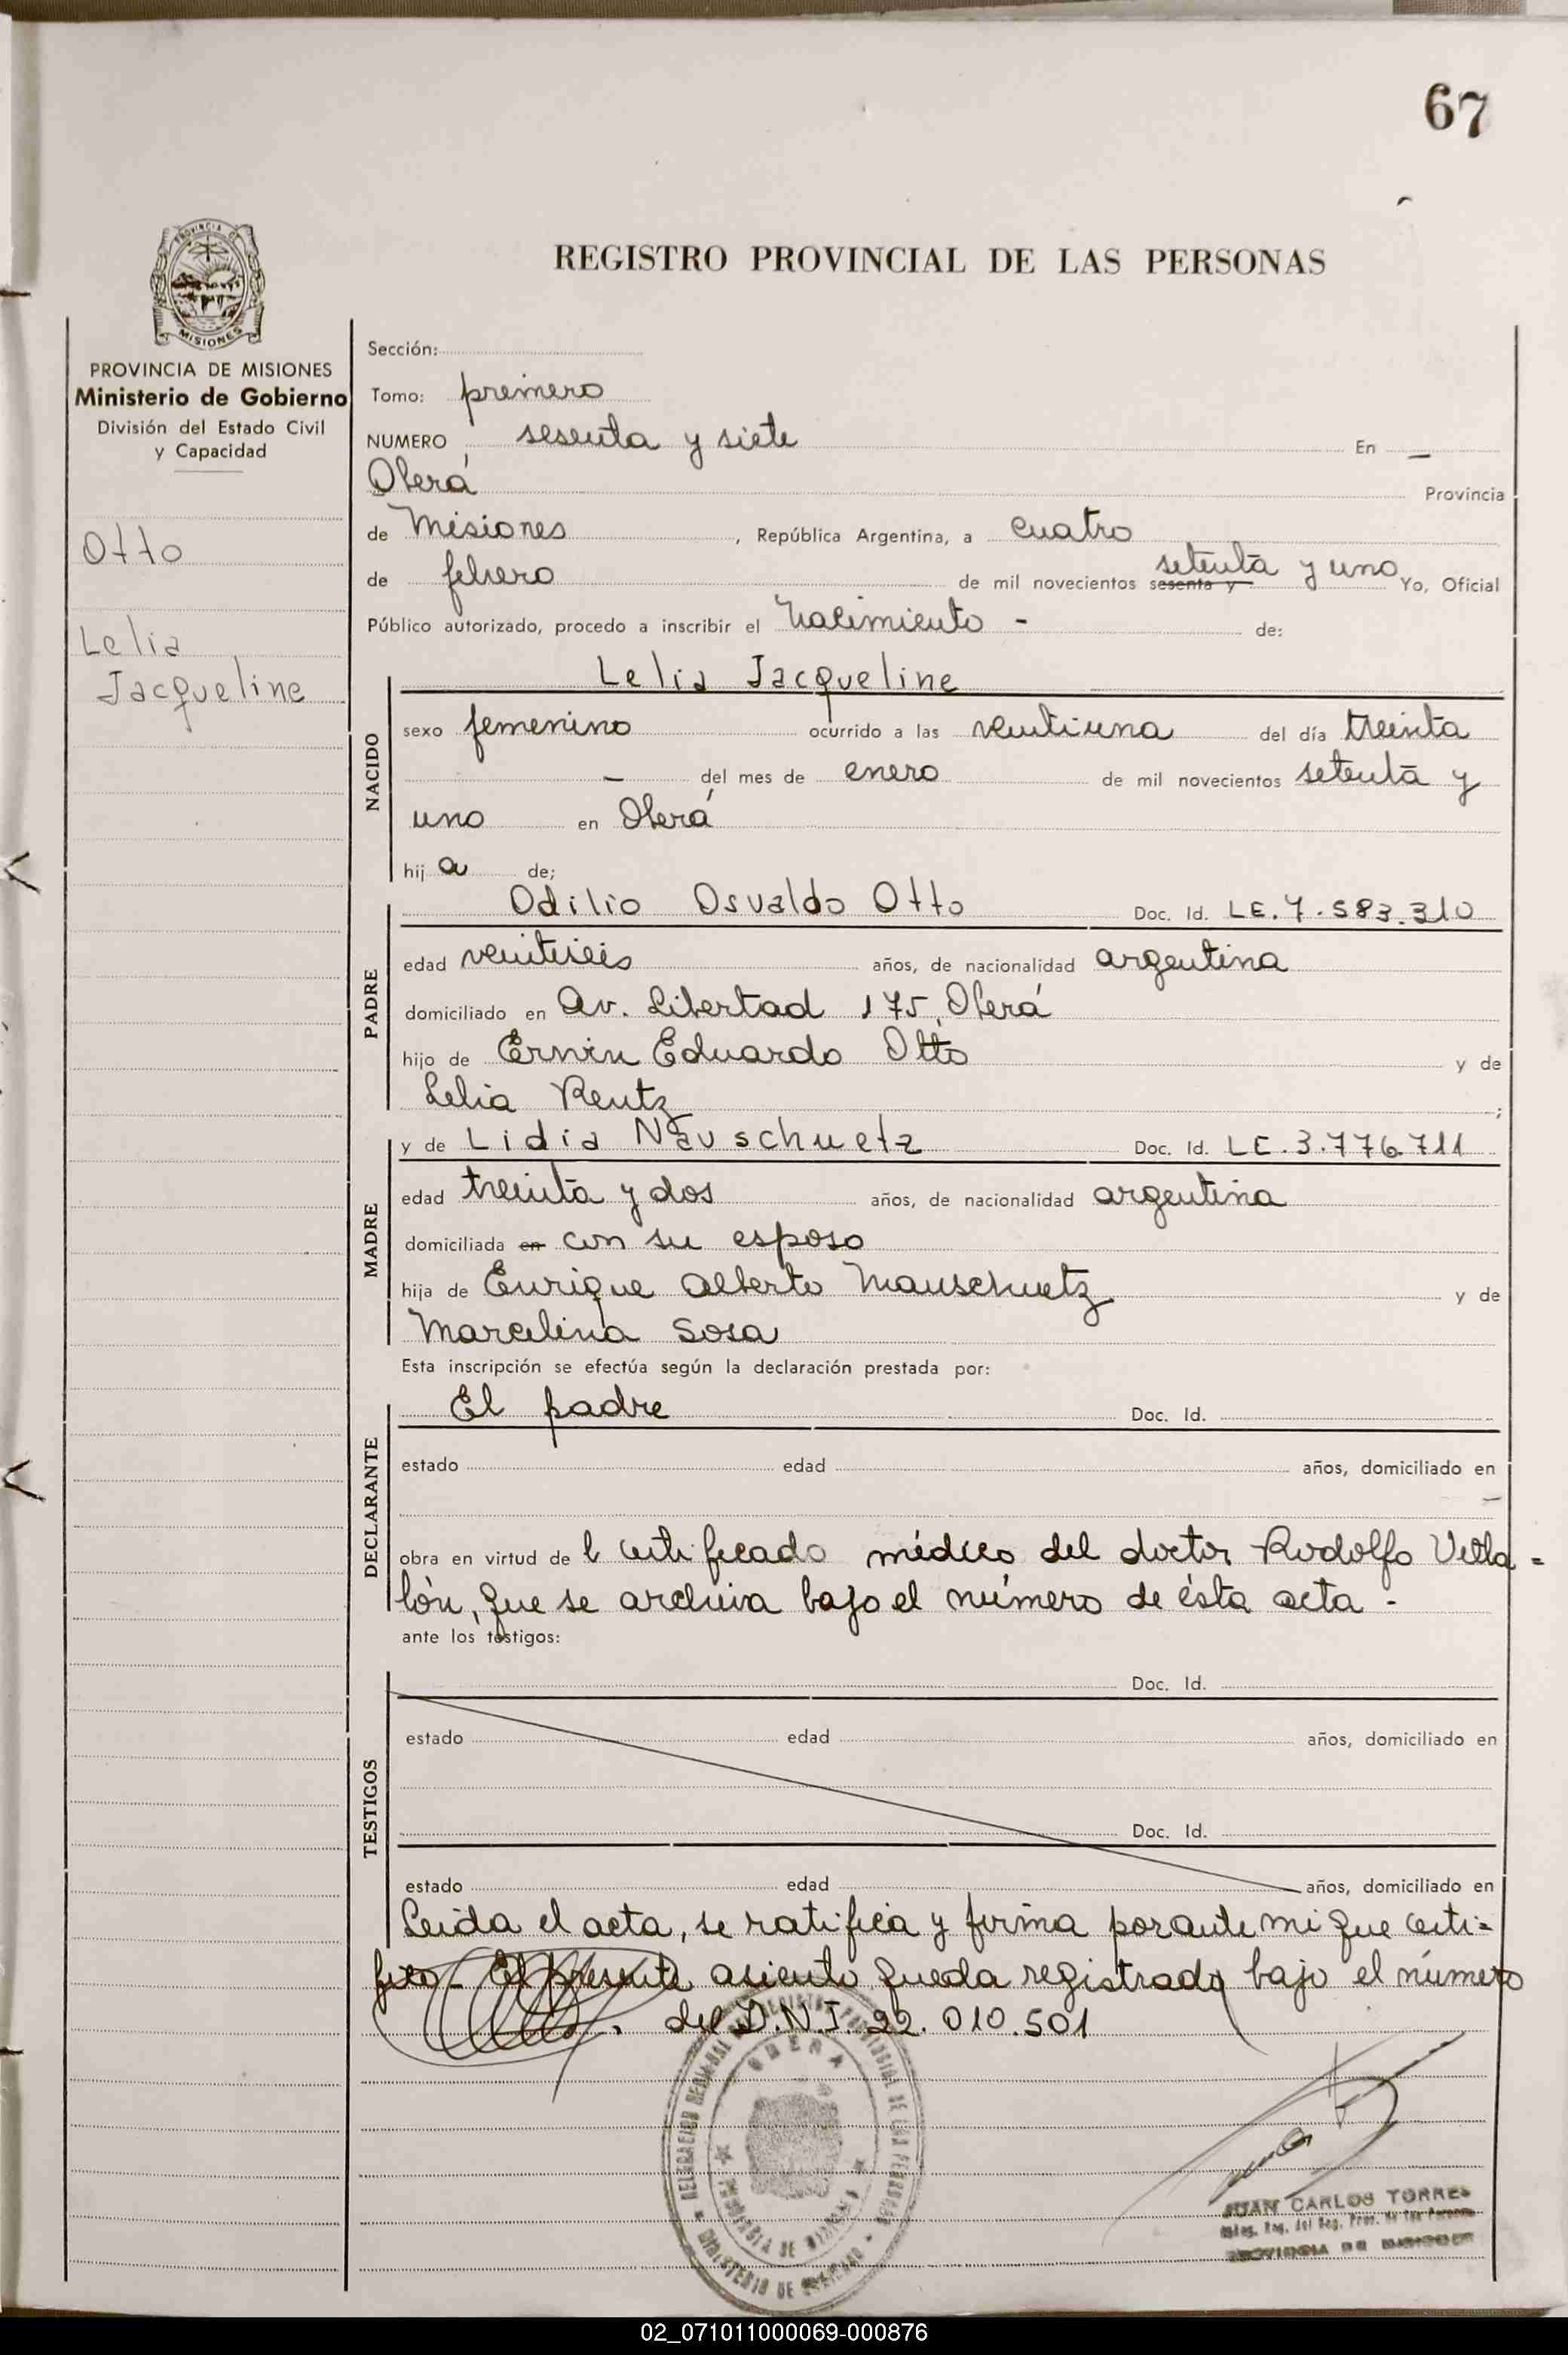 67
REGISTRO PROVINCIAL DE LAS PERSONAS
MISIONES
PROVINCIA DE MISIONES
Ministerio de Gobierno
División del Estado Civil
y Capacidad
Otto
Lelia
Jacqueline
Sección:
Tomo: primero
NUMERO sesenta y siete En —
Oberá Provincia
de Misiones, República Argentina, a cuatro
de febrero de mil novecientos sesenta y setenta y uno Yo, Oficial
Público autorizado, procedo a inscribir el nacimiento - de:
Lelia Jacqueline
NACIDO
sexo femenino ocurrido a las veintiuna del día treinta
— del mes de enero de mil novecientos setenta y
uno en Oberá
hij a de;
PADRE
Odilio Osvaldo Otto Doc. Id. LE. 7.583.310
edad veintiséis años, de nacionalidad argentina
domiciliado en Av. Libertad 175, Oberá
hijo de Erwin Eduardo Otto y de
Lelia Rentz ;
MADRE
y de Lidia Nauschuetz Doc. Id. LC. 3.776.711
edad treinta y dos años, de nacionalidad argentina
domiciliada en con su esposo
hija de Enrique Alberto Mauschuetz y de
Marcelina Sosa
Esta inscripción se efectúa según la declaración prestada por:
DECLARANTE
El padre Doc. Id.
estado edad años, domiciliado en
—
obra en virtud de l certificado médico del doctor Rodolfo Villa =
lón, que se archiva bajo el número de ésta acta -
ante los testigos:
TESTIGOS
Doc. Id.
estado edad años, domiciliado en
Doc. Id.
estado edad años, domiciliado en
Leida el acta, se ratifica y firma por ante mi que certi=
fico - El presente asiento queda registrado bajo el número
del D.N.I. 22.010.501
OBERA
PROVINCIA DE MISIONES
MINISTERIO DE GOBIERNO
JUAN CARLOS TORRES
PROVINCIA DE MISIONES
02_071011000069-000876